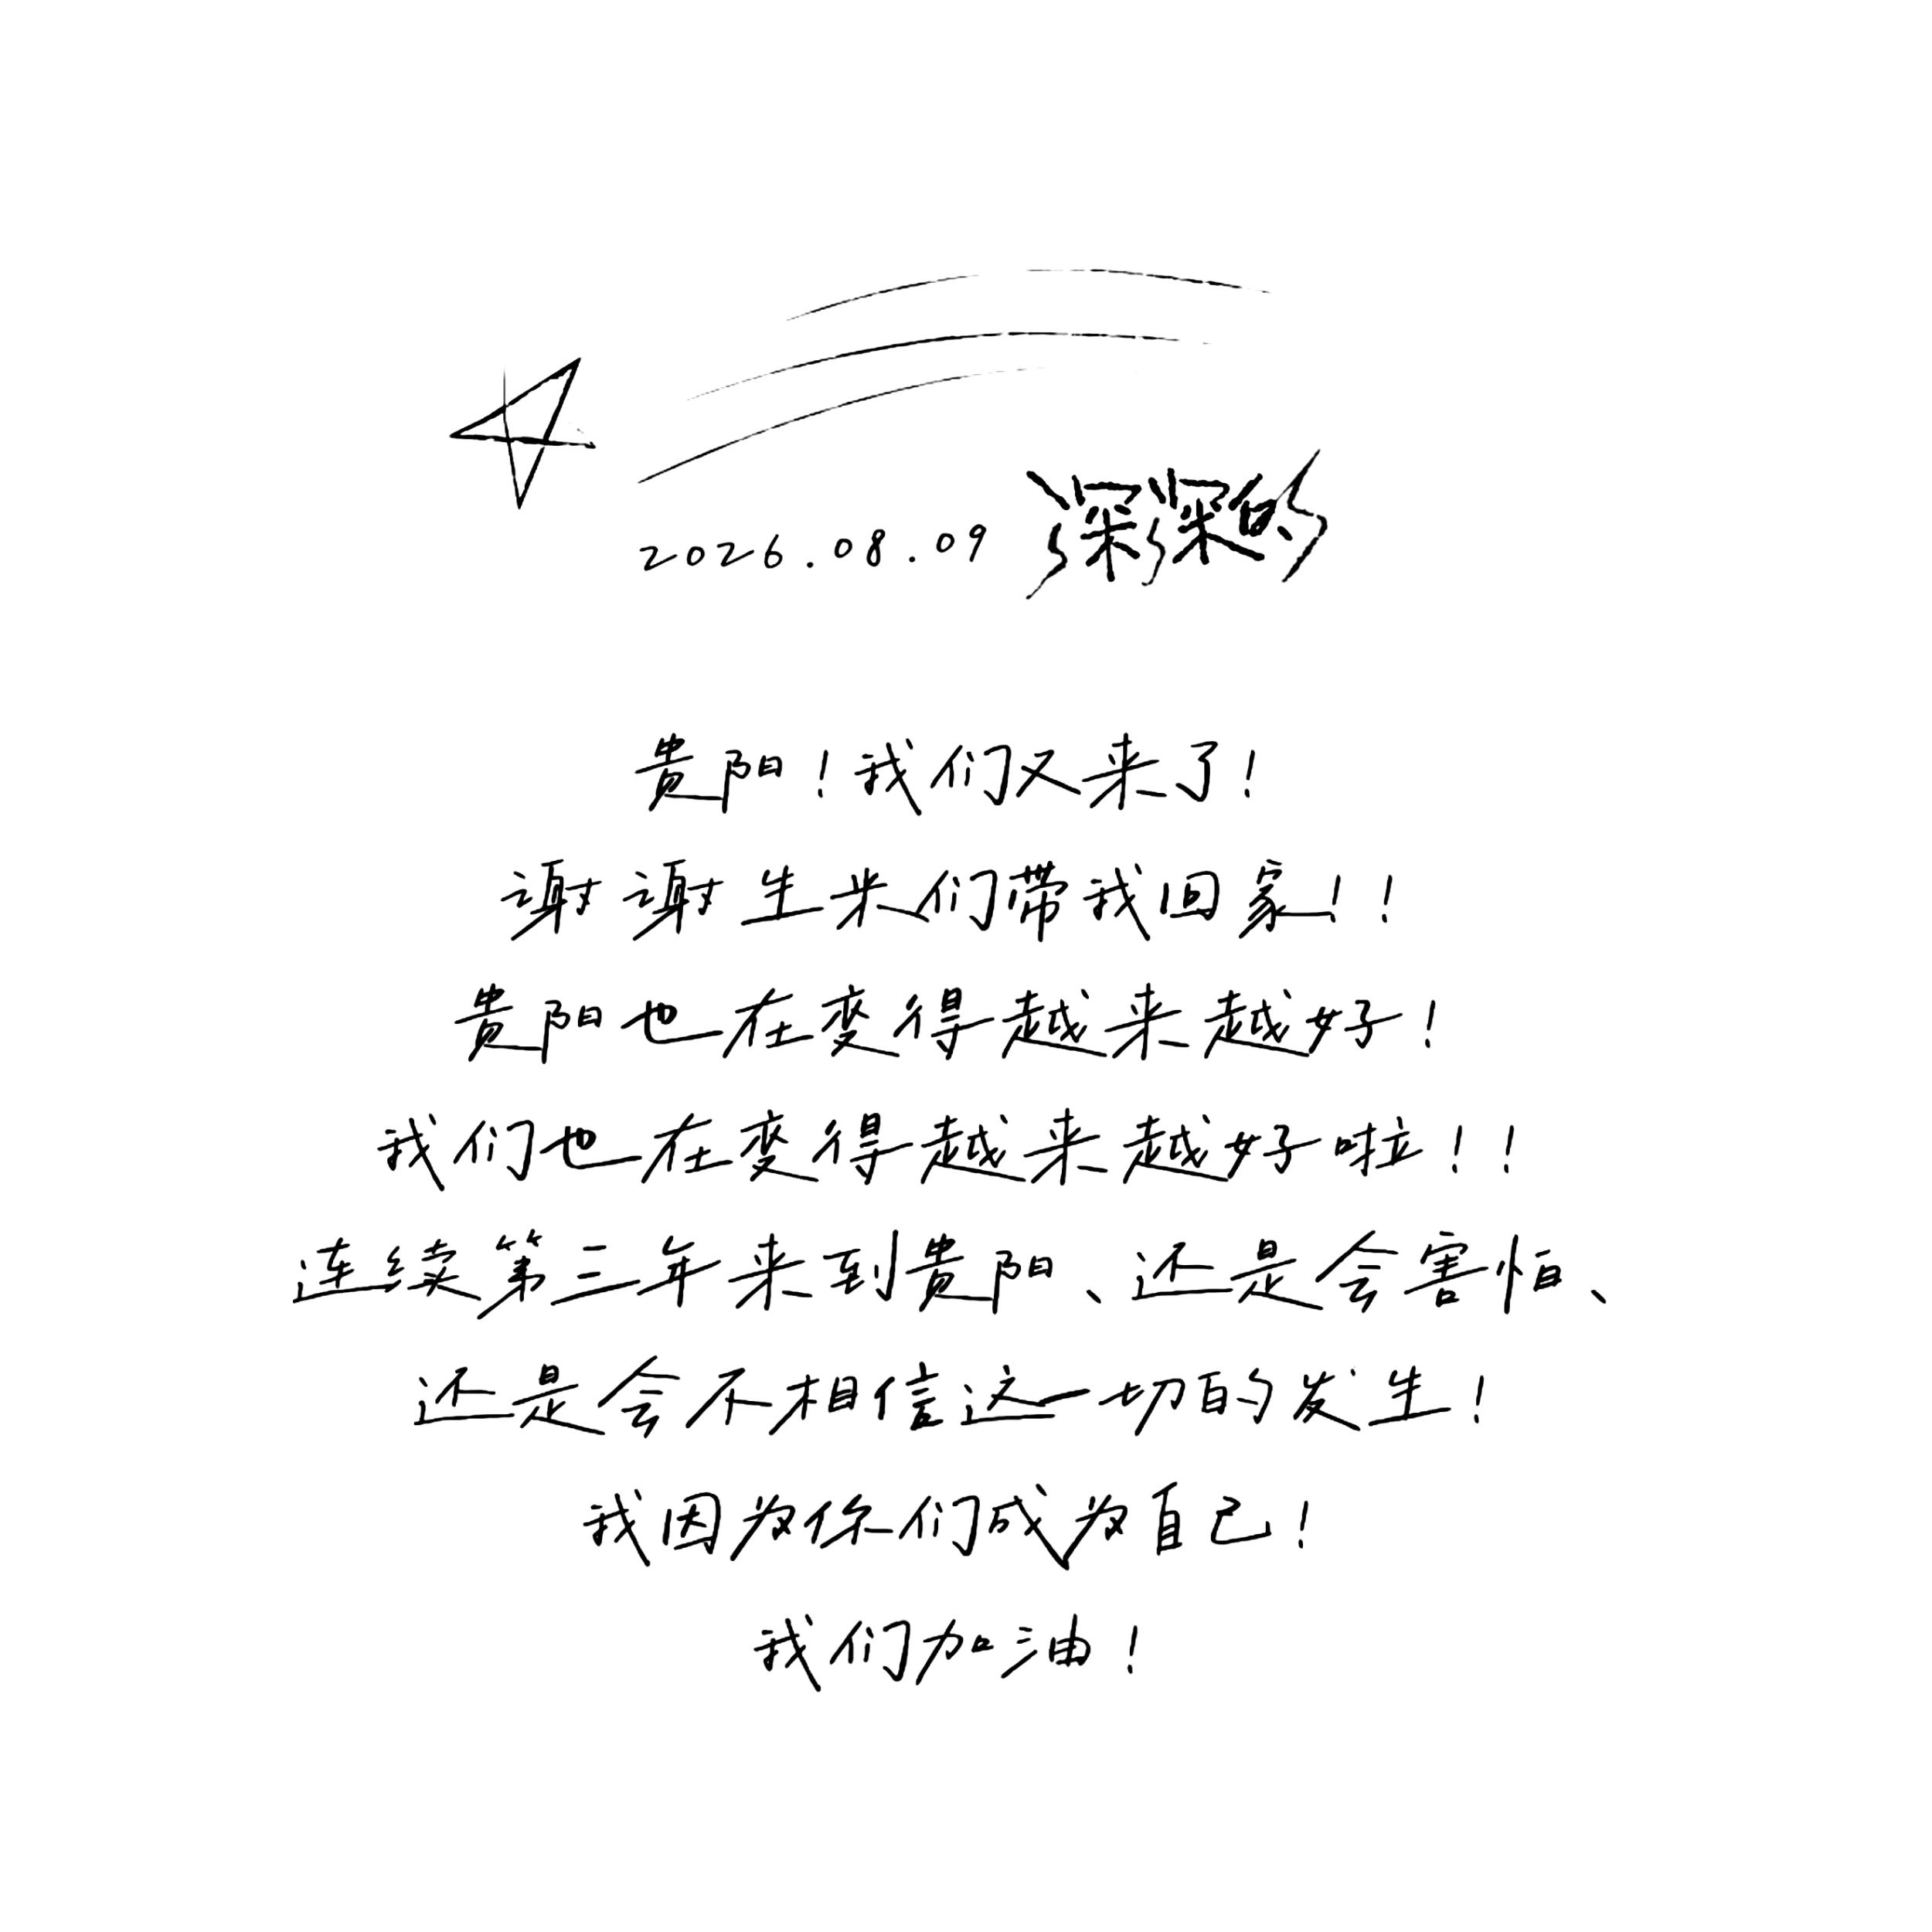 2026.08.09 深深的
贵阳！我们又来了！
谢谢生米们带我回家！！
贵阳也在变得越来越好！
我们也在变得越来越好啦！！
连续第三年来到贵阳、还是会害怕、
还是会不相信这一切的发生！
我因为你们成为自己！
我们加油！